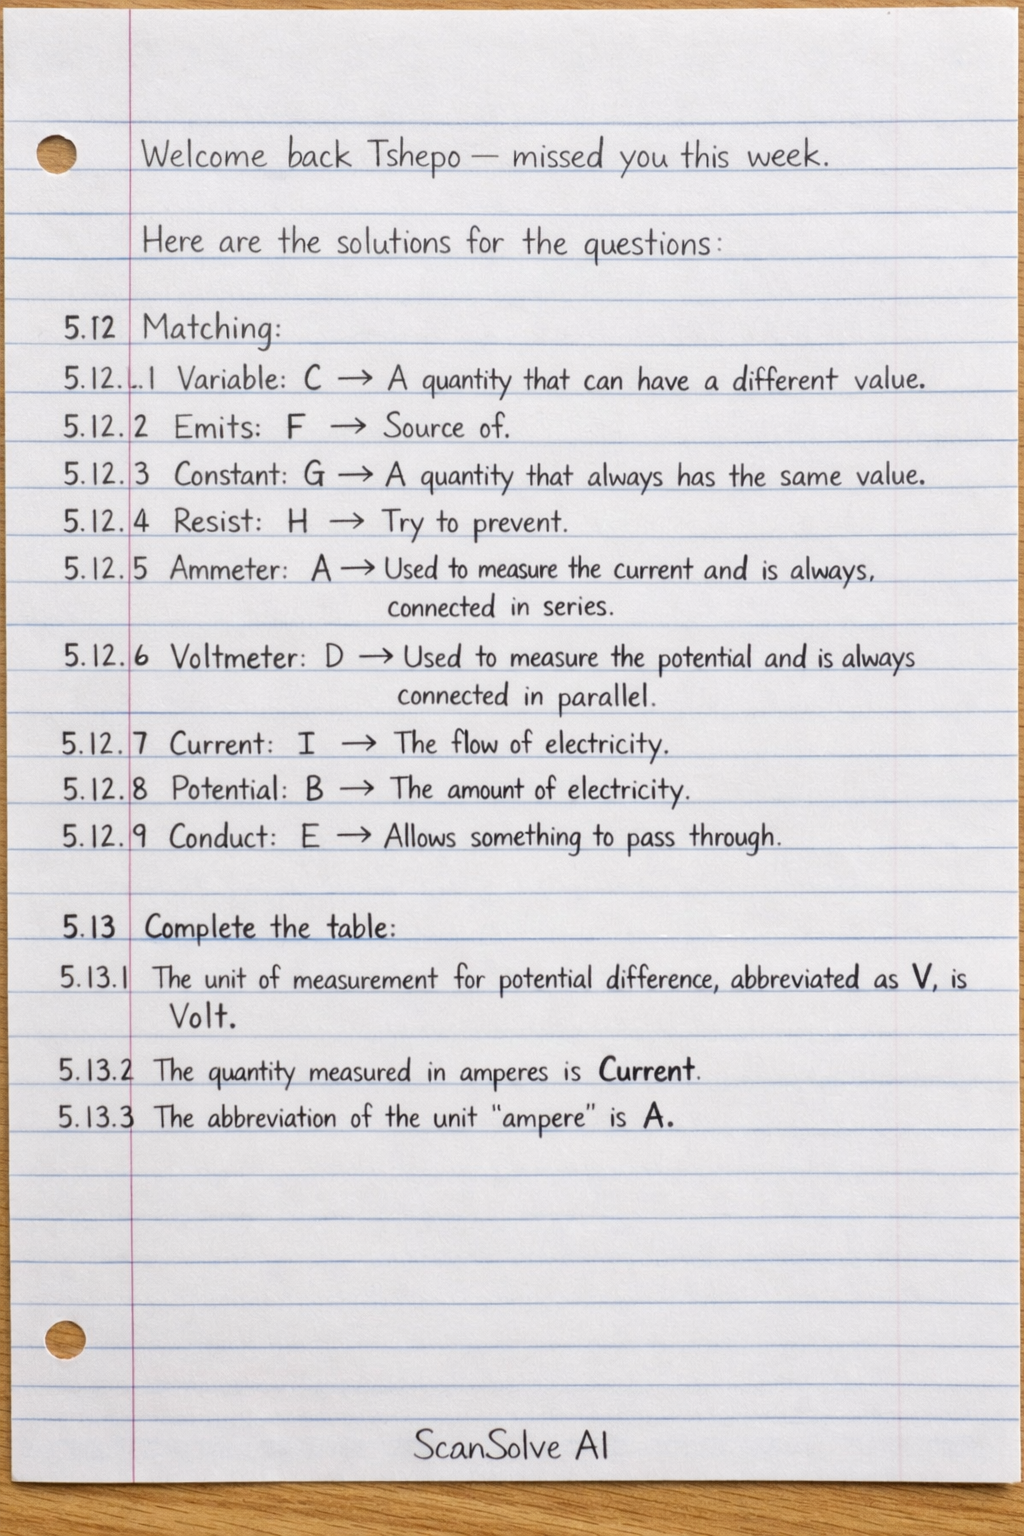 Welcome back Tshepo — missed you this week.
Here are the solutions for the questions:
5.12 Matching:
5.12..1 Variable: C → A quantity that can have a different value.
5.12.2 Emits: F → Source of.
5.12.3 Constant: G → A quantity that always has the same value.
5.12.4 Resist: H → Try to prevent.
5.12.5 Ammeter: A → Used to measure the current and is always,
connected in series.
5.12.6 Voltmeter: D → Used to measure the potential and is always
connected in parallel.
5.12.7 Current: I → The flow of electricity.
5.12.8 Potential: B → The amount of electricity.
5.12.9 Conduct: E → Allows something to pass through.
5.13 Complete the table:
5.13.1 The unit of measurement for potential difference, abbreviated as V, is
Volt.
5.13.2 The quantity measured in amperes is Current.
5.13.3 The abbreviation of the unit "ampere" is A.
ScanSolve AI